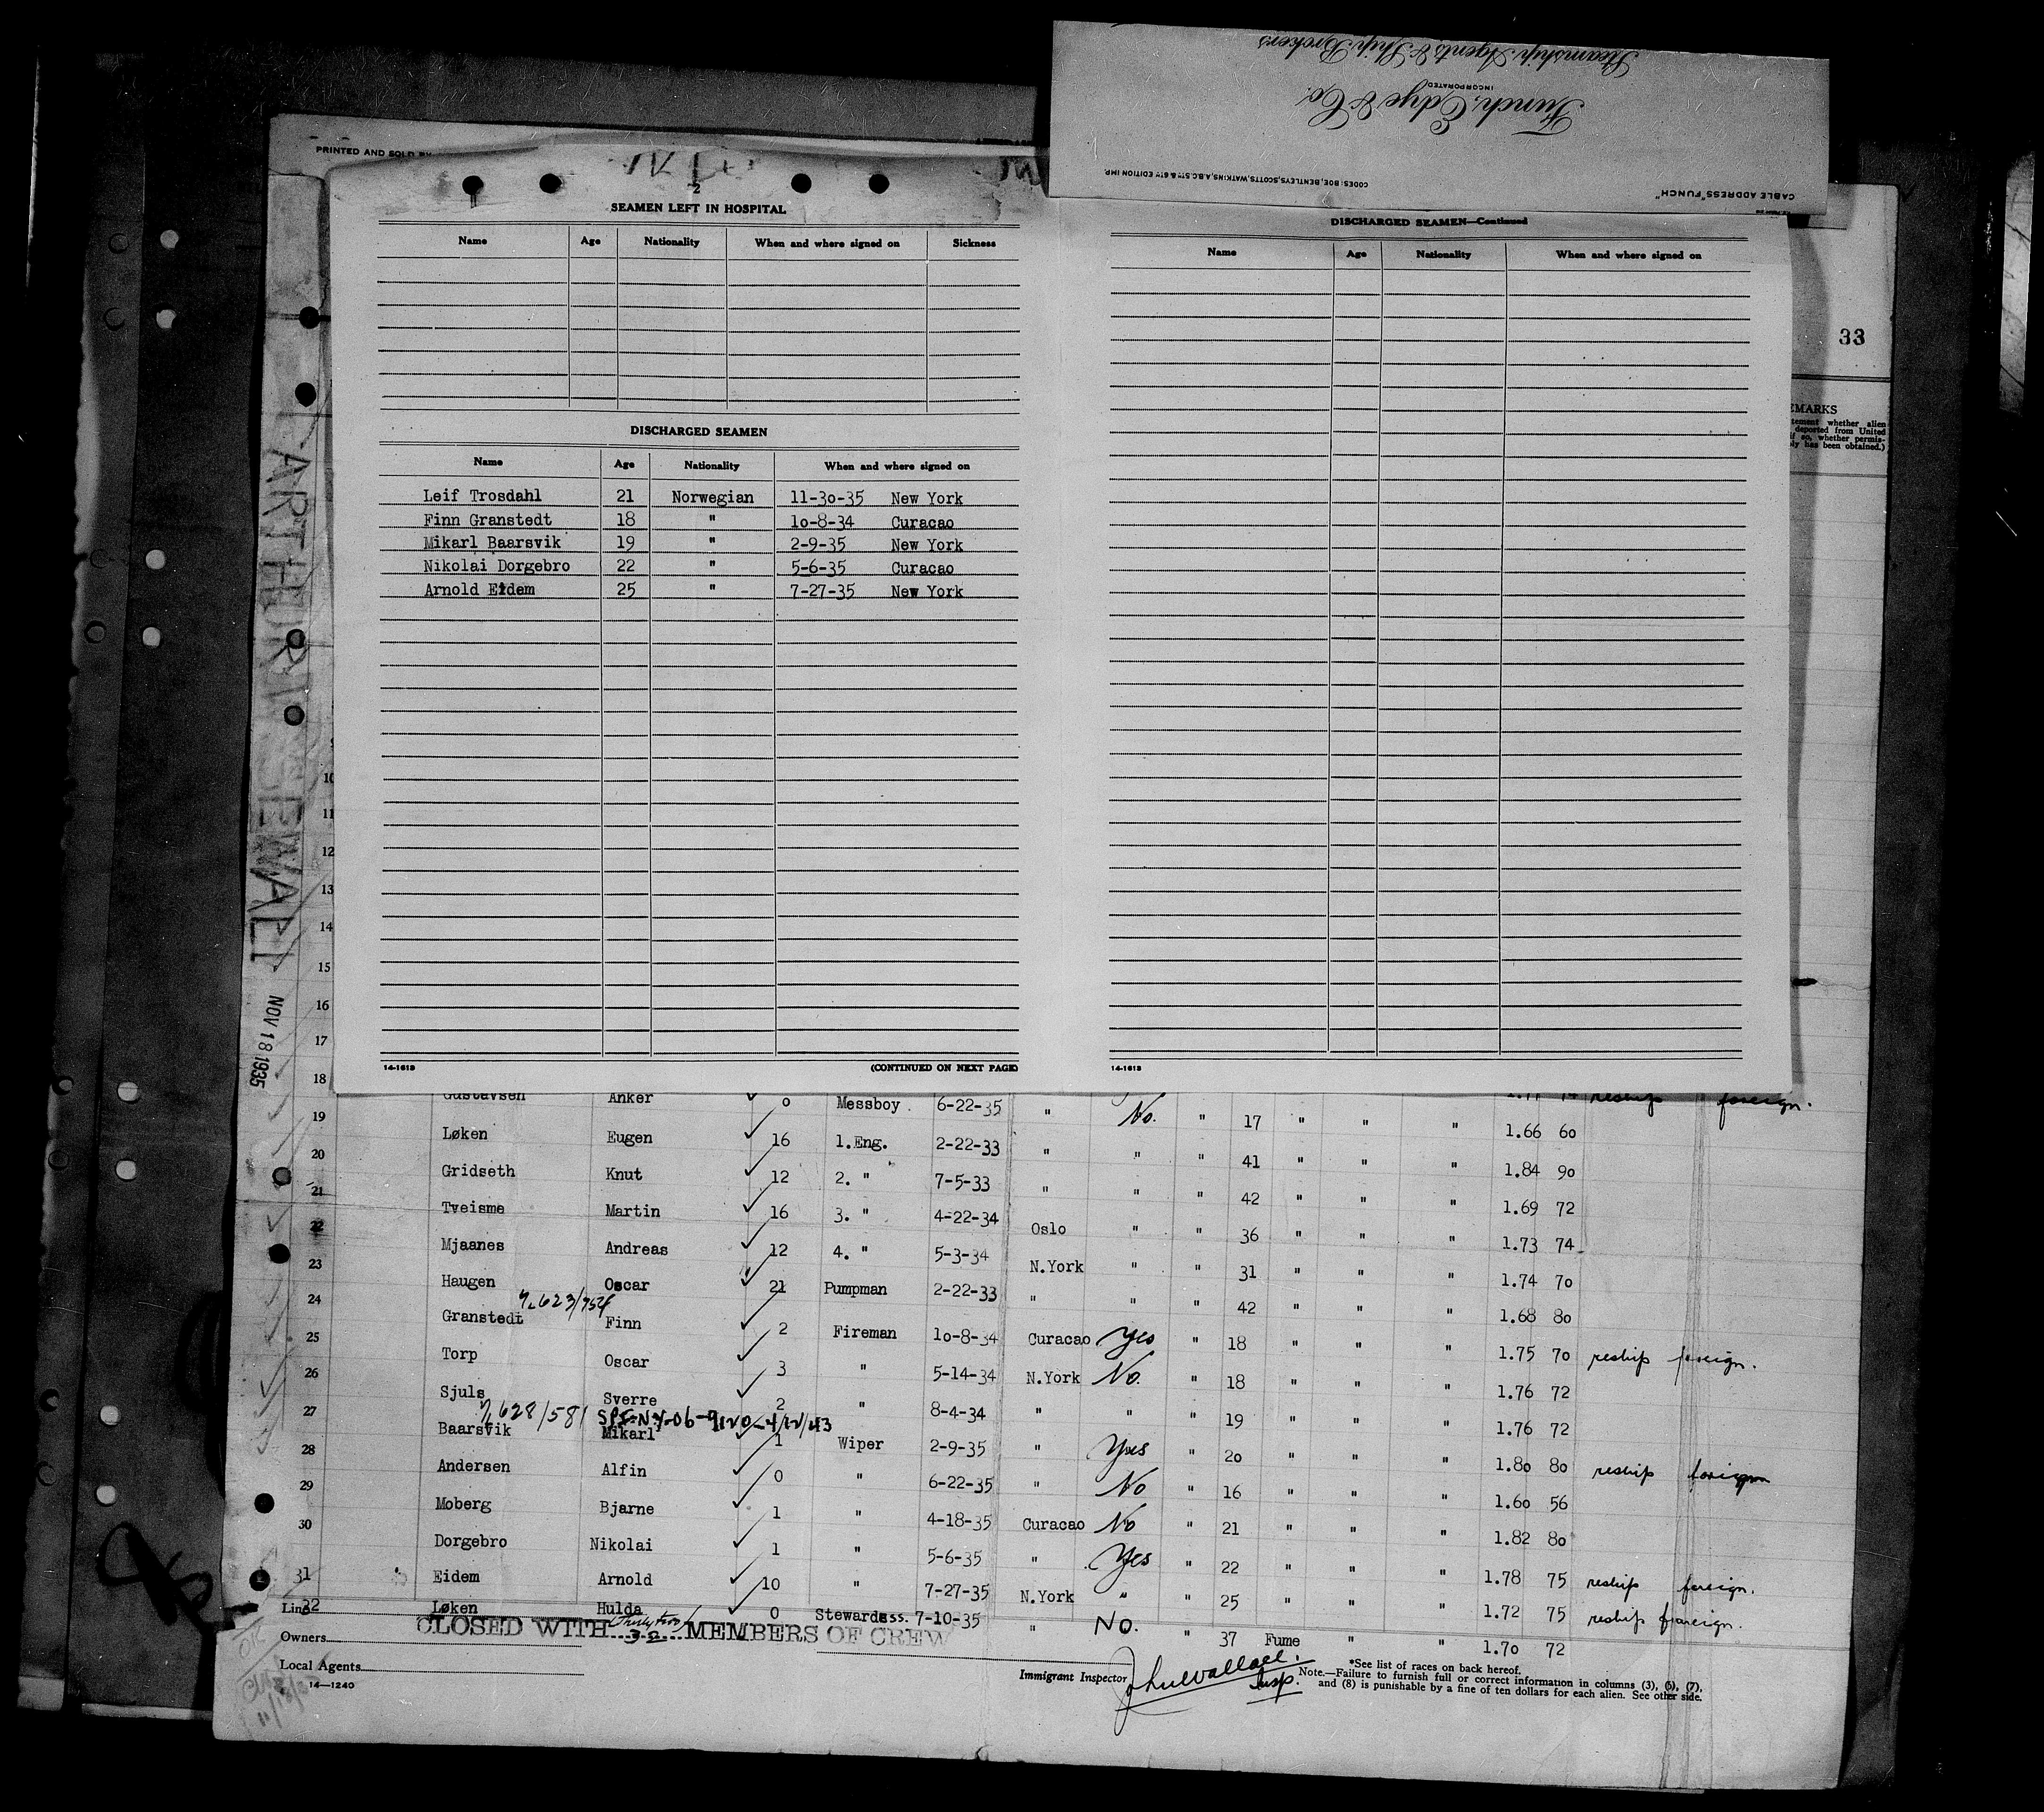 Steamship Agents & Ship Brokers
Funch, Edye & Co.
INCORPORATED
CABLE ADDRESS "FUNCH"
CODES: BOE, BENTLEYS, SCOTTS, WATKINS, A.B.C. 5TH & 6TH EDITION IMP.
PRINTED AND SOLD BY
2
SEAMEN LEFT IN HOSPITAL
Name Age Nationality When and where signed on Sickness
DISCHARGED SEAMEN
Name Age Nationality When and where signed on
Leif Trosdahl 21 Norwegian 11-30-35 New York
Finn Granstedt 18 " 10-8-34 Curacao
Mikarl Baarsvik 19 " 2-9-35 New York
Nikolai Dorgebro 22 " 5-6-35 Curacao
Arnold Eidem 25 " 7-27-35 New York
14-1613 (CONTINUED ON NEXT PAGE)
DISCHARGED SEAMEN—Continued
Name Age Nationality When and where signed on
14-1613
33
EMARKS
tement whether alien
deported from United
if so, whether permis-
ly has been obtained.)
NOV 18 1935
10
11
12
13
14
15
16
17
18 Gustavsen Anker 0 Messboy 6-22-35 " No. " 17 " " " 1.66 60
reship foreign.
19 Løken Eugen 16 1.Eng. 2-22-33 " " " 41 " " " 1.84 90
20 Gridseth Knut 12 2. " 7-5-33 " " " 42 " " " 1.69 72
21 Tveisme Martin 16 3. " 4-22-34 Oslo " " 36 " " " 1.73 74
22 Mjaanes Andreas 12 4. " 5-3-34 N.York " " 31 " " " 1.74 70
23 Haugen Oscar 21 Pumpman 2-22-33 " " " 42 " " " 1.68 80
24 Granstedt Finn 2 Fireman 10-8-34 Curacao Yes " 18 " " " 1.75 70 reship foreign.
25 Torp Oscar 3 " 5-14-34 N.York No. " 18 " " " 1.76 72
26 Sjuls Sverre 2 " 8-4-34 " " " 19 " " " 1.76 72
27 Baarsvik Mikarl 1 Wiper 2-9-35 " Yes " 20 " " " 1.80 80 reship foreign
28 Andersen Alfin 0 " 6-22-35 " No " 16 " " " 1.60 56
29 Moberg Bjarne 1 " 4-18-35 Curacao No " 21 " " " 1.82 80
30 Dorgebro Nikolai 1 " 5-6-35 " Yes " 22 " " " 1.78 75 reship foreign.
31 Eidem Arnold 10 " 7-27-35 N.York " " 25 " " " 1.72 75 reship foreign.
32 Løken Hulda 0 Stewardess. 7-10-35 " No. " 37 Fume " " 1.70 72
Line
CLOSED WITH 32 MEMBERS OF CREW
Owners
Local Agents
14—1240
Immigrant Inspector
Insp.
*See list of races on back hereof.
Note.—Failure to furnish full or correct information in columns (3), (5), (7),
and (8) is punishable by a fine of ten dollars for each alien. See other side.